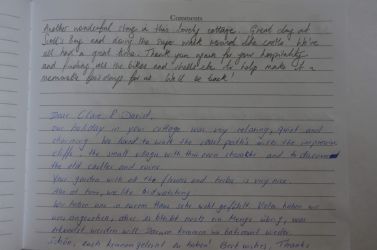 Comments
Another wonderful stay in this lovely cottage. Great day at
Bay and doing the walk around the castle. We've
all had a great time. Thank you again for your hospitality
and finding all the bikes and to help make it a
memorable few days for us. We'll be back!
Dear Clare & David,
our holiday in your cottage was very relaxing, quiet and
charming. We loved to walk the coast paths with the impressive
cliffs, the small villages with their own character and to discover
the old castles and ruins.
Your garden with all the flowers and herbs is very nice.
And of course, we like birdwatching.
Wir haben uns in eurem Haus sehr wohl gefühlt. Vieles haben wir
uns angesehen, aber es bleibt noch eine Menge übrig, was
erkundet werden will. Darum kommen wir bestimmt wieder.
Schön, euch kennen gelernt zu haben! Best wishes,